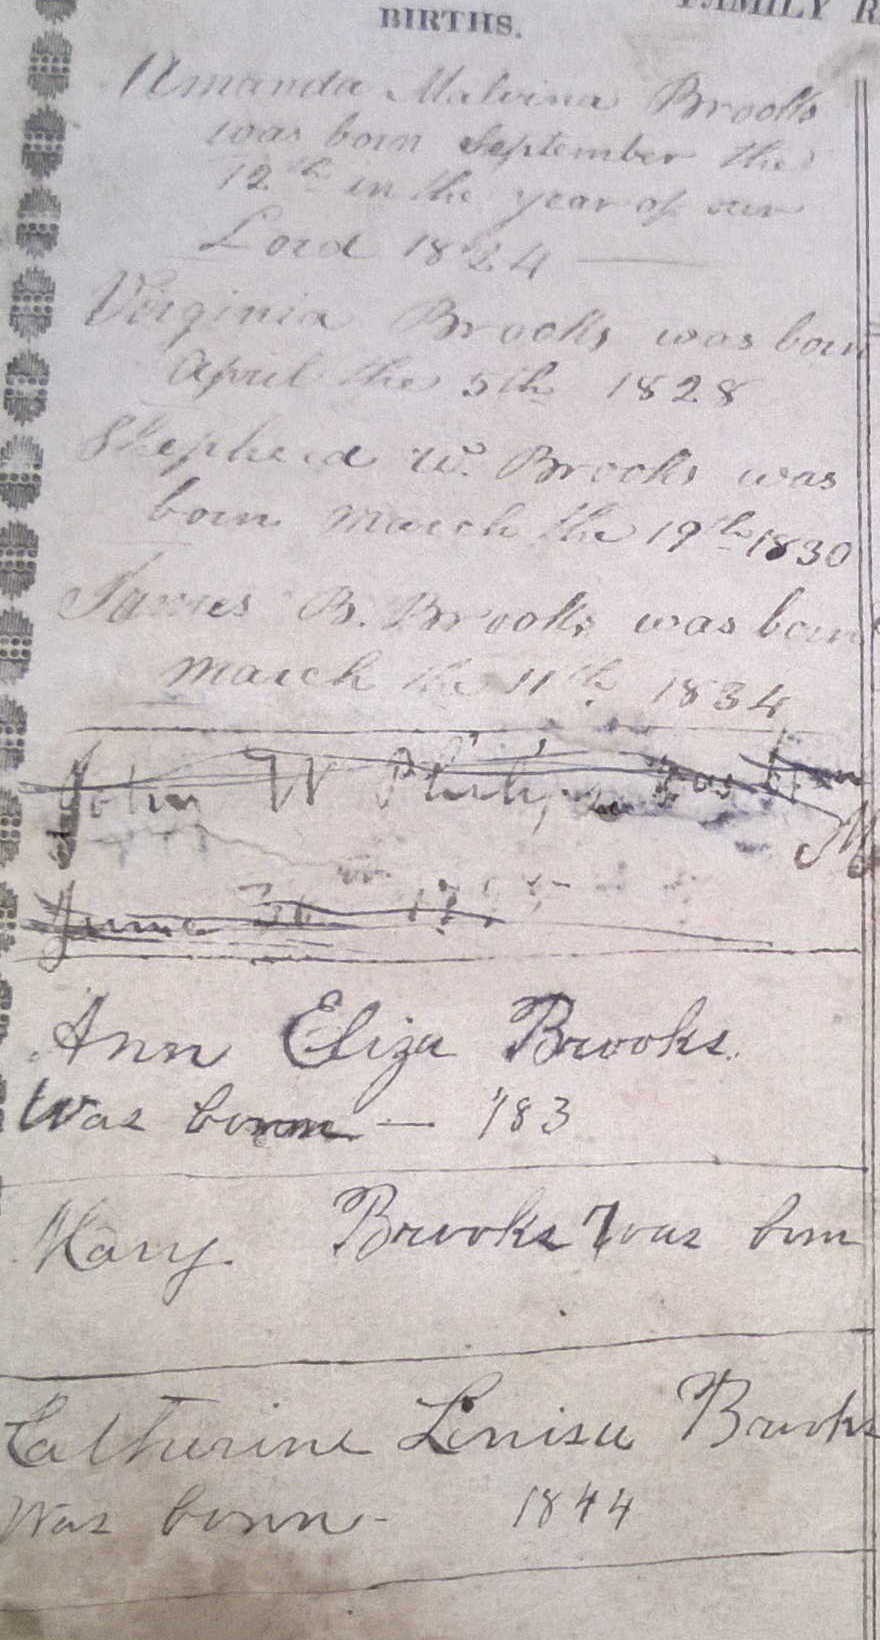 FAMILY R
BIRTHS.
Amanda Malvina Brooks
was born September the
12th in the year of our
Lord 1824
Virginia Brooks was born
April the 5th 1828
Shepherd W. Brooks was
born March the 19th 1830
James B. Brooks was born
March the 11th 1834
John W Philips was born
June
Ann Eliza Brooks.
Was born — 183
Mary. Brooks Was born
Catherine Louisa Brooks
Was born - 1844